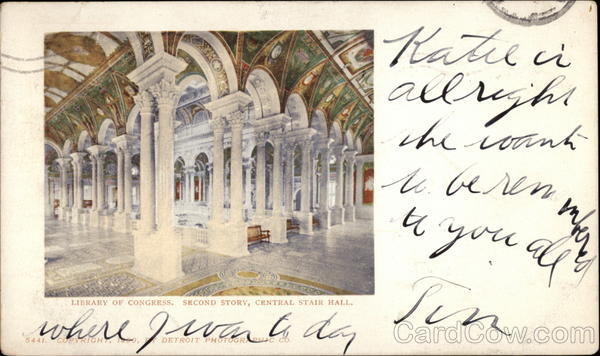 Katie is
all right
she wants
to be rem
embered
to you all
Tim
LIBRARY OF CONGRESS. SECOND STORY, CENTRAL STAIR HALL.
5441. COPYRIGHT, 1900, BY DETROIT PHOTOGRAPHIC CO.
where I was to day
CardCow.com